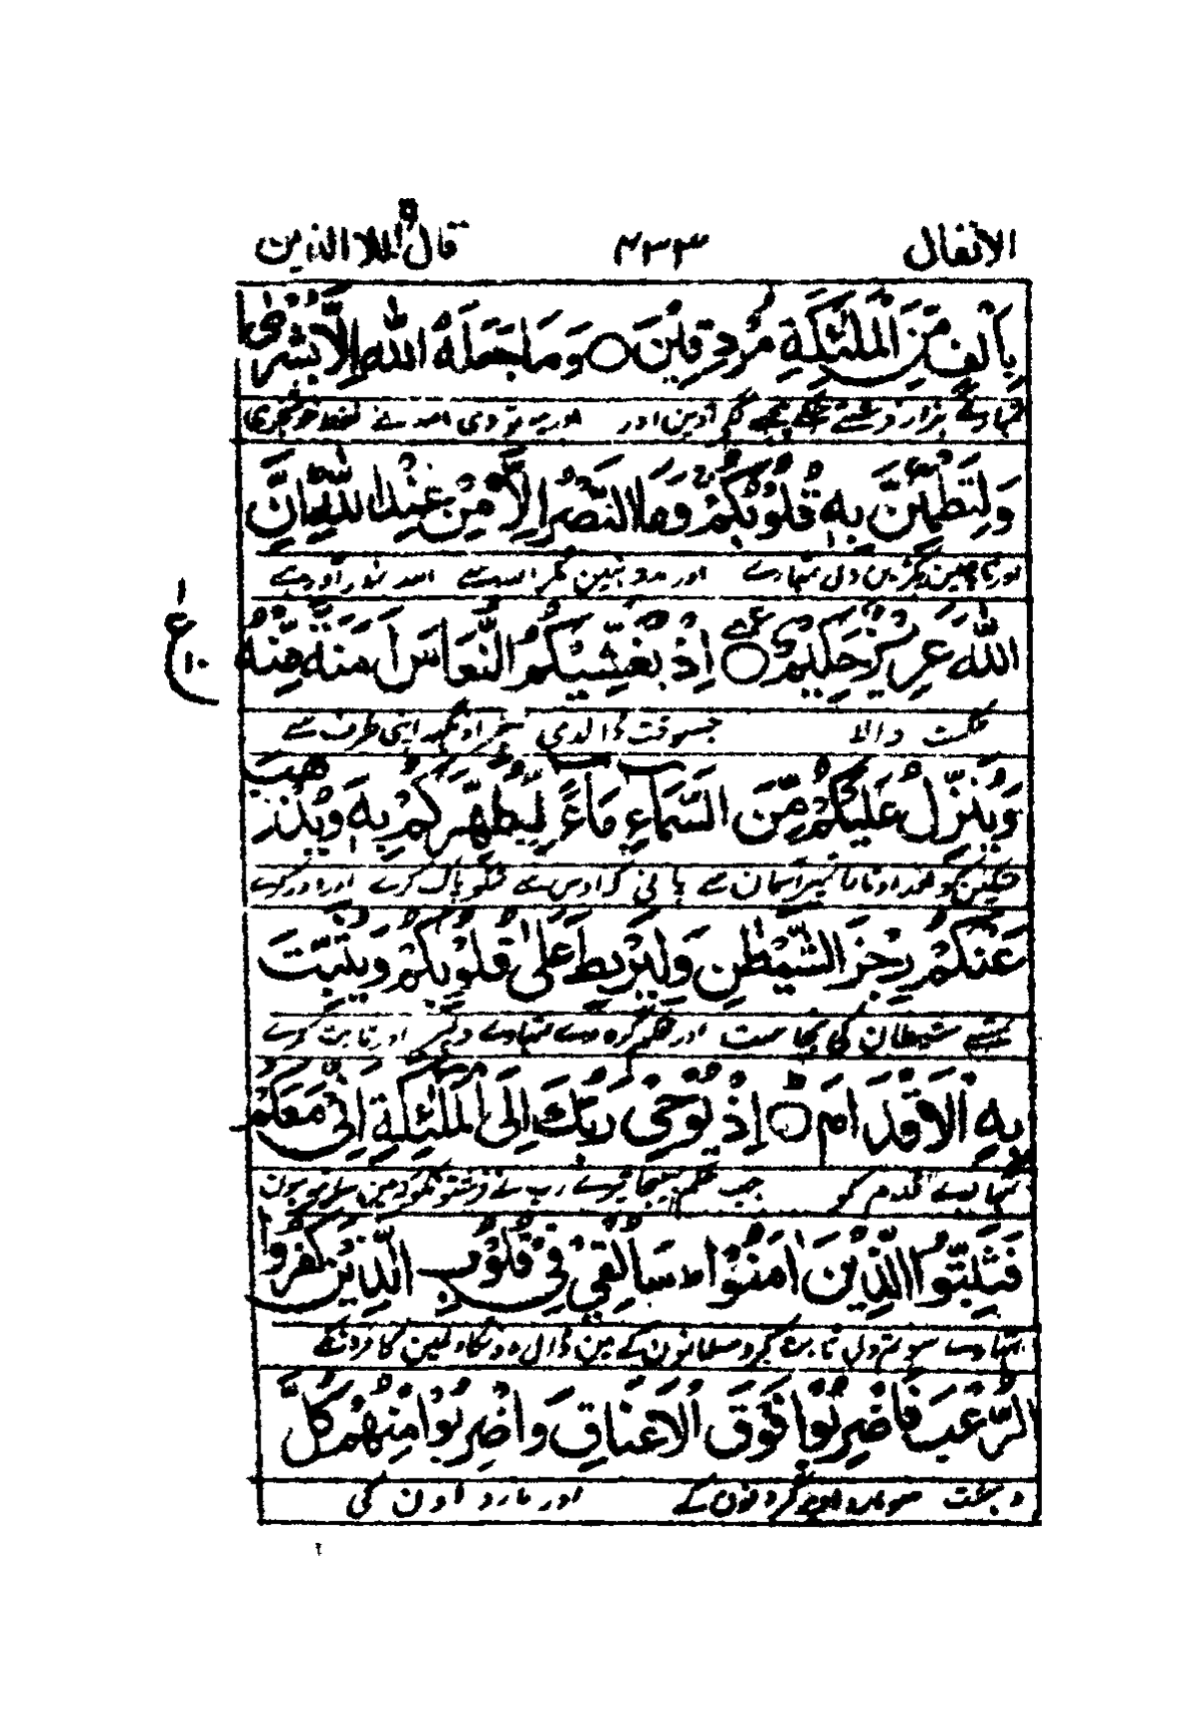 الانفال ۴۳۳ قال الملا الذین
بِاَلْفٍ مِّنَ الْمَلٰٓئِكَةِ مُرْدِفِیْنَ ○ وَمَا جَعَلَهُ اللّٰهُ اِلَّا بُشْرٰى
ہزار فرشتے پیچھے اور یہ تو دی اللہ نے فقط خوشخبری
وَلِتَطْمَئِنَّ بِهٖ قُلُوْبُكُمْ وَمَا النَّصْرُ اِلَّا مِنْ عِنْدِ اللّٰهِ اِنَّ
اور تا چین پکڑیں دل تمہارے اور مدد نہین مگر اللہ سے اللہ زور آور ہے
اللّٰهَ عَزِیْزٌ حَكِیْمٌ ○ اِذْ یُغَشِّیْكُمُ النُّعَاسَ اَمَنَةً مِّنْهُ
ع ۱۰
حکمت والا جسوقت ڈالدی اونگھ اپنی طرف سے
وَیُنَزِّلُ عَلَیْكُمْ مِّنَ السَّمَآءِ مَآءً لِّیُطَهِّرَكُمْ بِهٖ وَیُذْهِبَ
تسکین کو اور اوتارا تمپر آسمان سے پانی کہ اوس سے تمکو پاک کرے اور دور کرے
عَنْكُمْ رِجْزَ الشَّیْطٰنِ وَلِیَرْبِطَ عَلٰى قُلُوْبِكُمْ وَیُثَبِّتَ
تمسے شیطان کی نجاست اور محکم گرہ دے تمہارے دلپر اور ثابت کرے
بِهِ الْاَقْدَامَ ○ اِذْ یُوْحِیْ رَبُّكَ اِلَى الْمَلٰٓئِكَةِ اَنِّیْ مَعَكُمْ
تمہارے قدم کو جب حکم بھیجا تیرے رب نے فرشتونکو کہ مین ساتھ ہون
فَثَبِّتُوا الَّذِیْنَ اٰمَنُوْا ط سَاُلْقِیْ فِیْ قُلُوْبِ الَّذِیْنَ كَفَرُوا
تمہارے سو تم دل ثابت کرو مسلمانون کے مین ڈال دونگا دلمین کافرونکے
الرُّعْبَ فَاضْرِبُوْا فَوْقَ الْاَعْنَاقِ وَاضْرِبُوْا مِنْهُمْ كُلَّ
دہشت سو مارو اوپر گردنون کے اور مارو اون کی